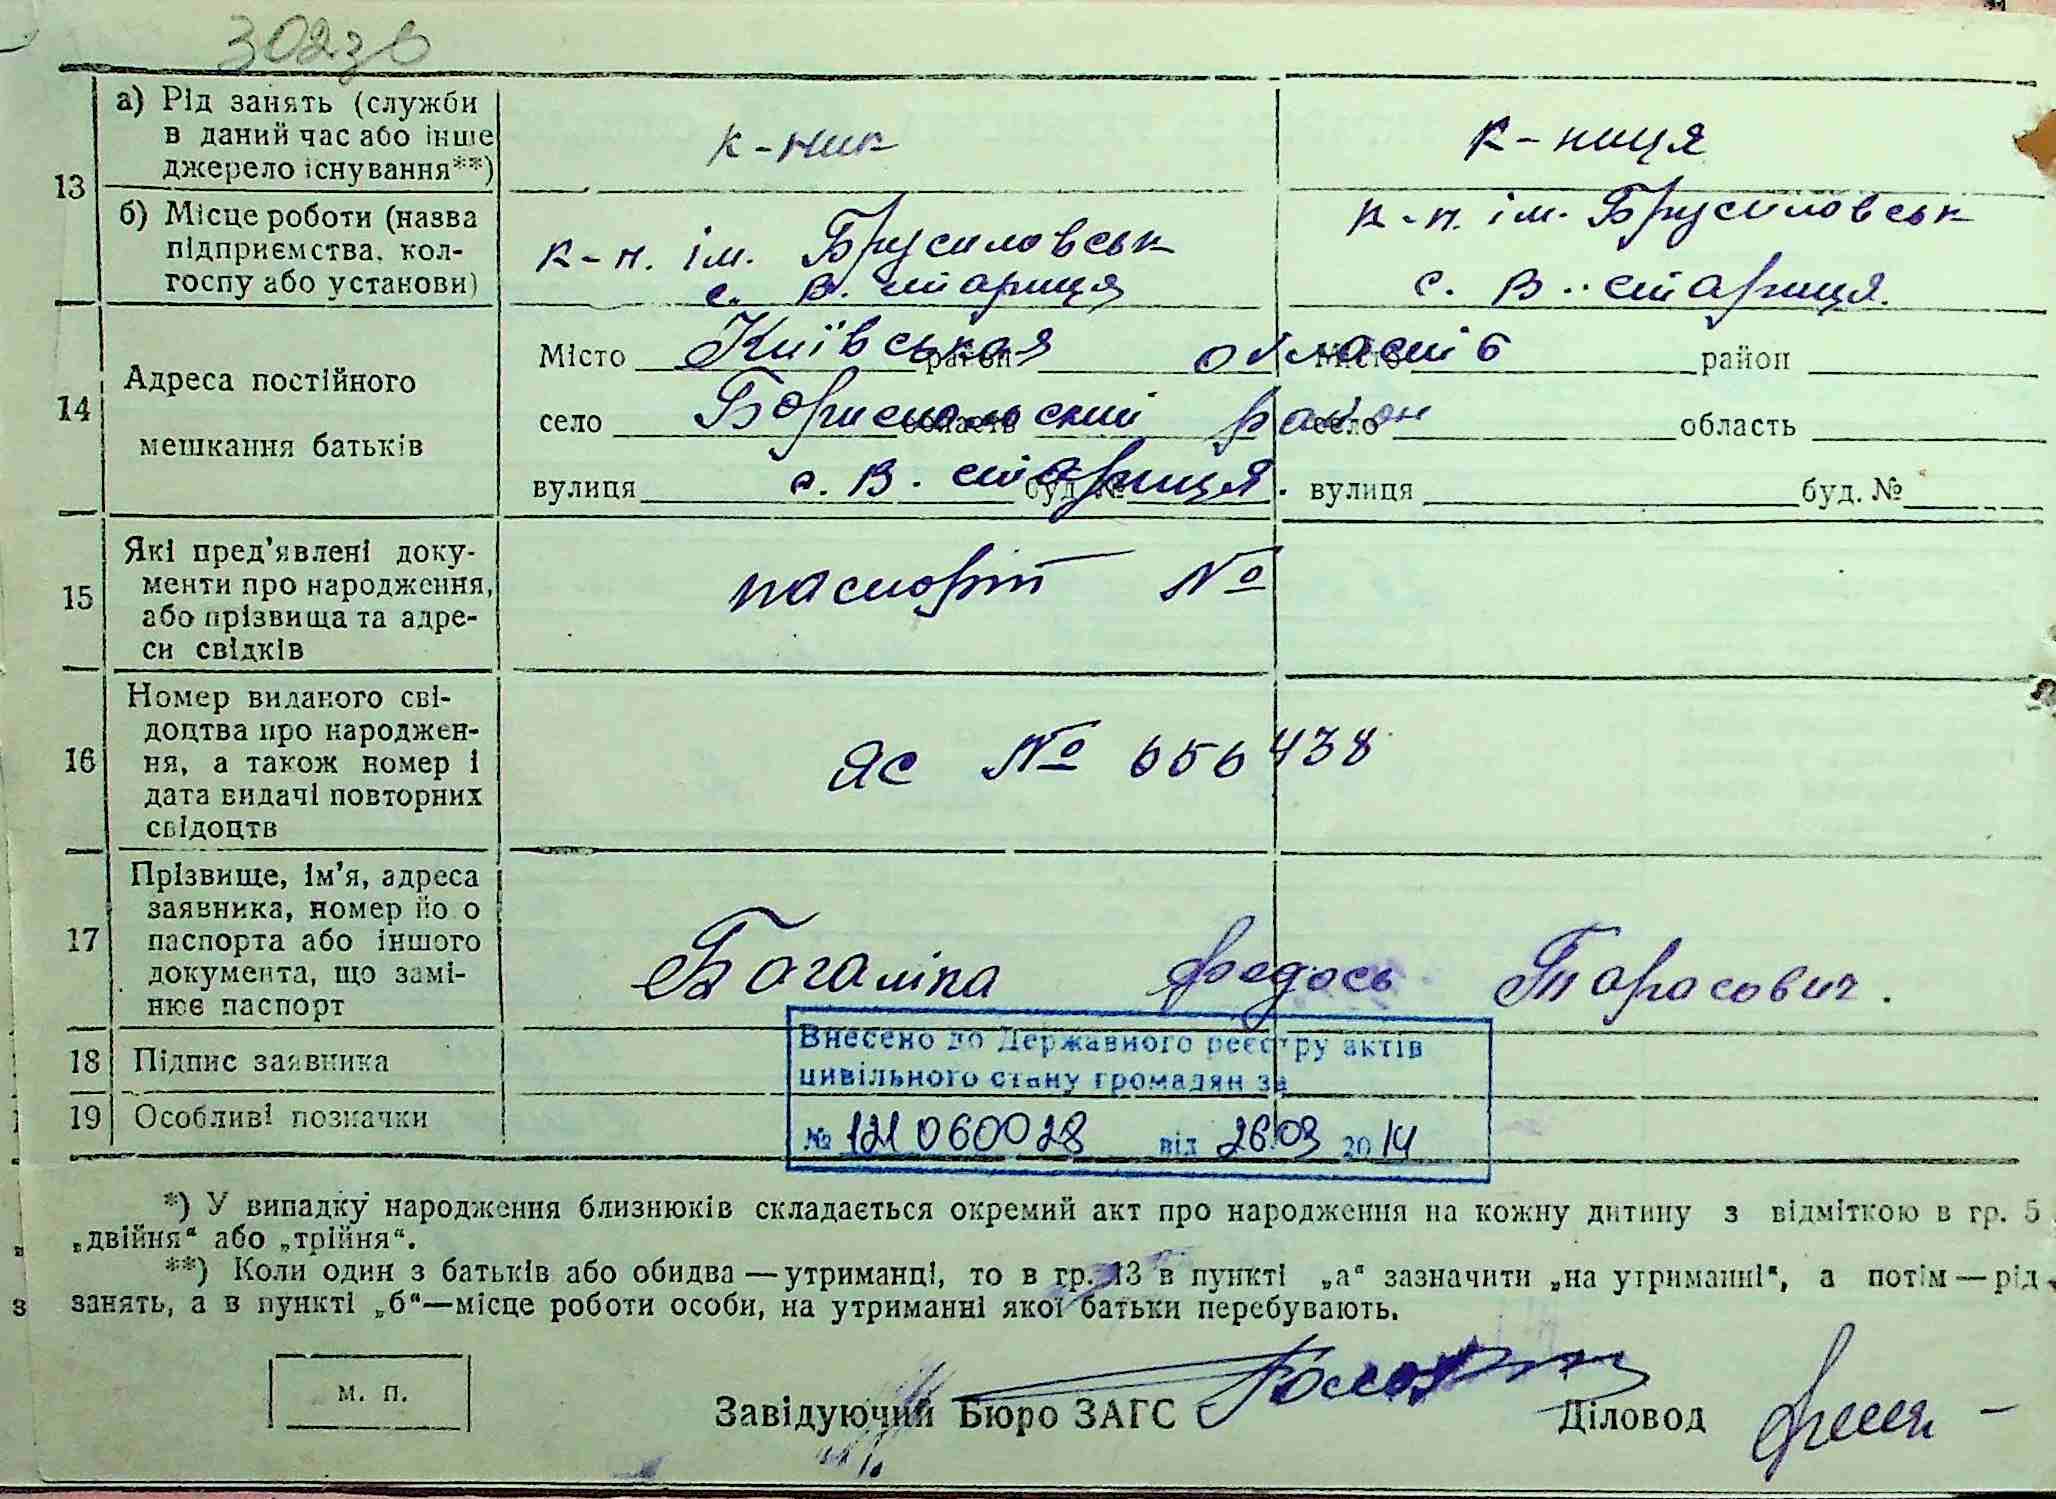 302зв
13
а) Рід занять (служби
в даний час або інше
джерело існування**)
к-ник
к-ниця
б) Місце роботи (назва
підприємства, кол-
госпу або установи)
к-п. ім. Брусиловськ
с. В. Стариця
к-п. ім. Брусиловськ
с. В. Стариця.
14
Адреса постійного
мешкання батьків
Місто район Місто район
Київськая область
село область село область
Бориспольский район
вулиця буд. № вулиця буд. №
с. В. Стариця.
15
Які пред'явлені доку-
менти про народження,
або прізвища та адре-
си свідків
паспорт №
16
Номер виданого сві-
доцтва про народжен-
ня, а також номер і
дата видачі повторних
свідоцтв
ЯС №
17
Прізвище, ім'я, адреса
заявника, номер йо о
паспорта або іншого
документа, що замі-
нює паспорт
Федось Тарасович.
18 Підпис заявника
19 Особливі позначки
Внесено до Державного реєстру актів
цивільного стану громадян за
№ 121060028 від 26.03 2014
*) У випадку народження близнюків складається окремий акт про народження на кожну дитину з відміткою в гр. 5
„двійня“ або „трійня“.
**) Коли один з батьків або обидва — утриманці, то в гр. 13 в пункті „а“ зазначити „на утриманні“, а потім — рід
занять, а в пункті „б“—місце роботи особи, на утриманні якої батьки перебувають.
м. п.
Завідуючий Бюро ЗАГС
Діловод